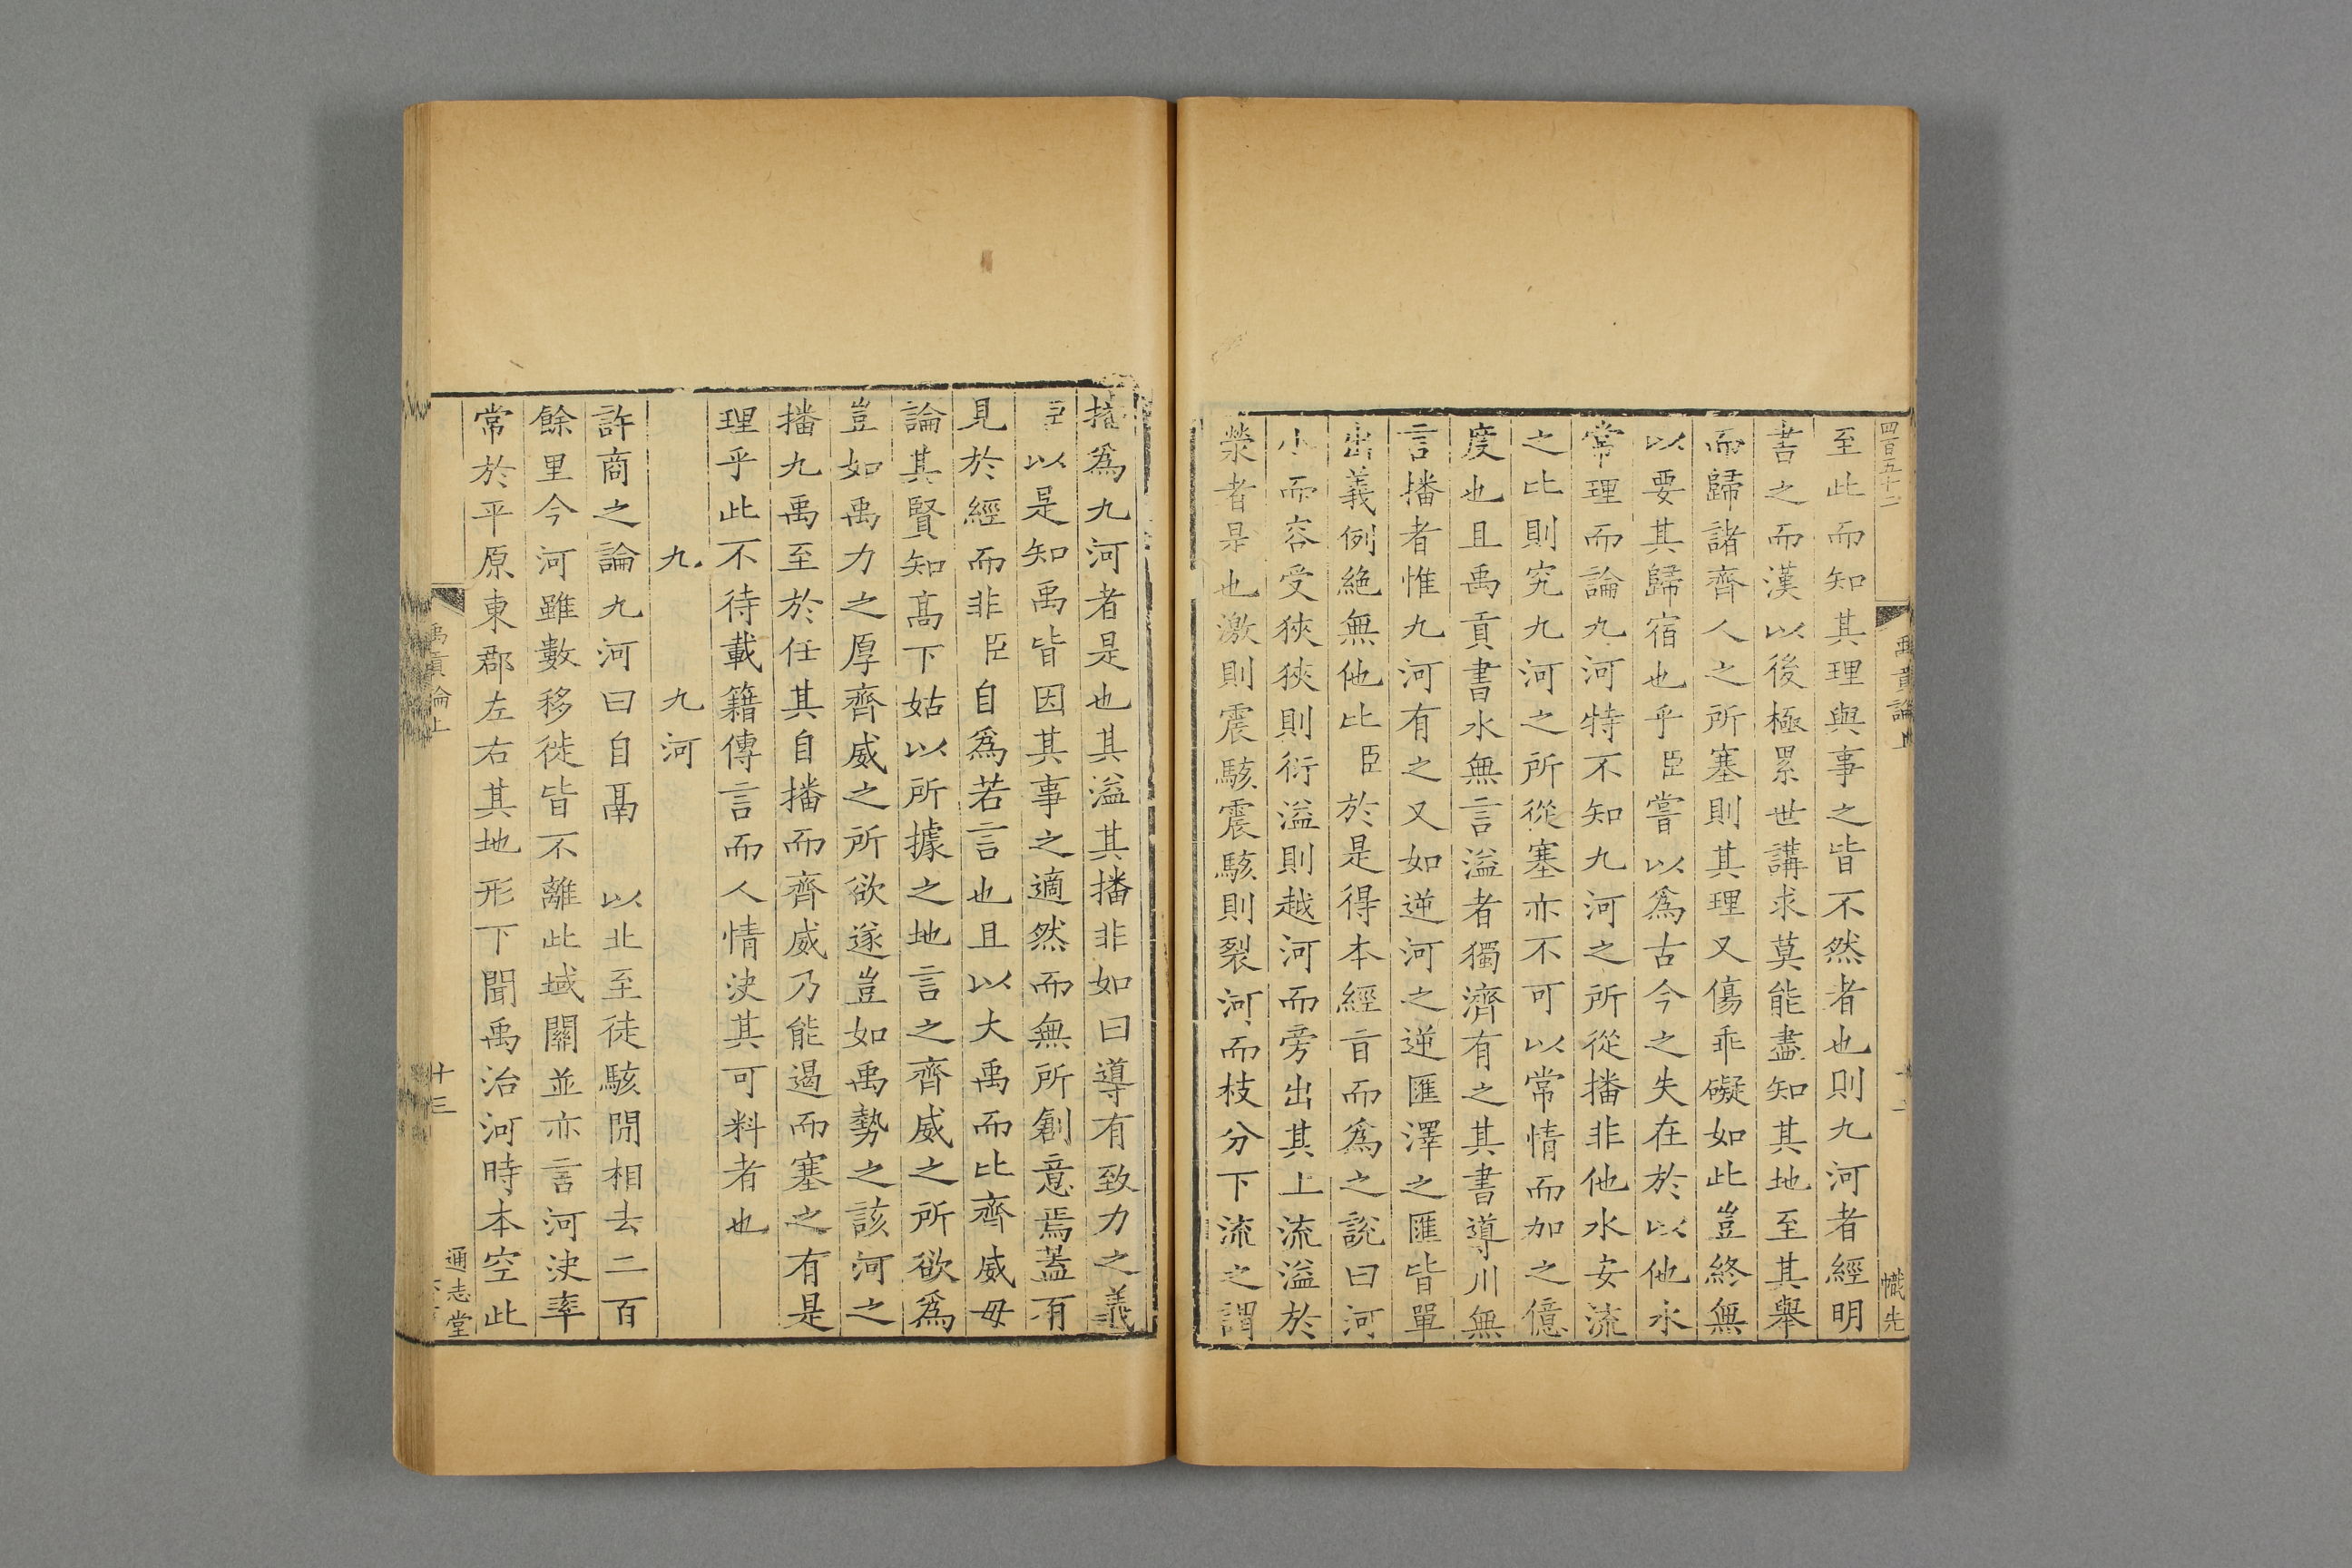 四百五十二
禹貢論上
幟先
至此而知其理與事之皆不然者也則九河者經明
書之而漢以後極累世講求莫能盡知其地至其舉
而歸諸齊人之所塞則其理又傷乖礙如此豈終無
以要其歸宿也乎臣嘗以爲古今之失在於以他水
常理而論九河特不知九河之所從播非他水安流
之比則究九河之所從塞亦不可以常情而加之億
度也且禹貢書水無言溢者獨濟有之其書導川無
言播者惟九河有之又如逆河之逆匯澤之匯皆單
出義例絶無他比臣於是得本經旨而爲之說曰河
小而容受狹狹則衍溢則越河而旁出其上流溢於
滎者是也激則震駭震駭則裂河而枝分下流之謂
播爲九河者是也其溢其播非如曰導有致力之義
以是知禹皆因其事之適然而無所創意焉蓋有
見於經而非臣自爲若言也且以大禹而比齊威毋
論其賢知高下姑以所據之地言之齊威之所欲爲
豈如禹力之厚齊威之所欲遂豈如禹勢之該河之
播九禹至於任其自播而齊威乃能遏而塞之有是
理乎此不待載籍傳言而人情決其可料者也
九 九河
許商之論九河曰自鬲 以北至徒駭閒相去二百
餘里今河雖數移徙皆不離此域關並亦言河決率
常於平原東郡左右其地形下聞禹治河時本空此
禹貢論上
十三
通志堂